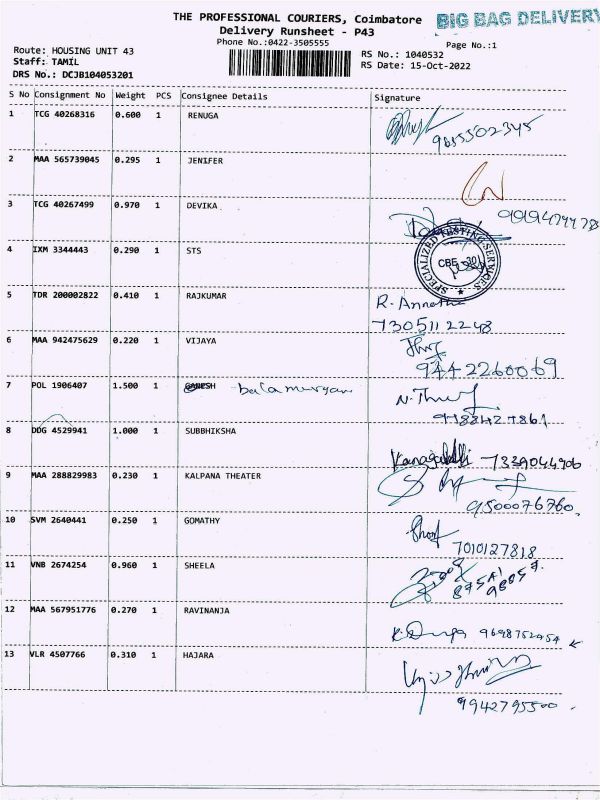 THE PROFESSIONAL COURIERS, Coimbatore
BIG BAG DELIVERY
Delivery Runsheet - P43
Phone No.:0422-3505555
Page No.:1
Route: HOUSING UNIT 43
RS No.: 1040532
Staff: TAMIL
RS Date: 15-Oct-2022
DRS No.: DCJB104053201
S No Consignment No Weight PCS Consignee Details Signature
1 TCG 40268316 0.600 1 RENUGA
9655502345
2 MAA 565739045 0.295 1 JENIFER
3 TCG 40267499 0.970 1 DEVIKA
4 IXM 3344443 0.290 1 STS
SPECIALIZED TESTING SERVICES
CBE - 30
5 TDR 200002822 0.410 1 RAJKUMAR R.
7305112248
6 MAA 942475629 0.220 1 VIJAYA
9442260069
7 POL 1906407 1.500 1 GANESH - balamurugan
8 DDG 4529941 1.000 1 SUBBHIKSHA
7339044906
9 MAA 288829983 0.230 1 KALPANA THEATER
9500076760.
10 SVM 2640441 0.250 1 GOMATHY
7010127818
11 VNB 2674254 0.960 1 SHEELA
12 MAA 567951776 0.270 1 RAVINANJA
K. Durga 9698752954
13 VLR 4507766 0.310 1 HAJARA
9942795500.